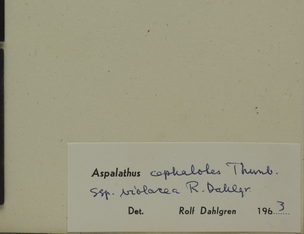 Aspalathus cephalotes Thunb.
ssp. violacea R. Dahlgr
Det. Rolf Dahlgren 1963